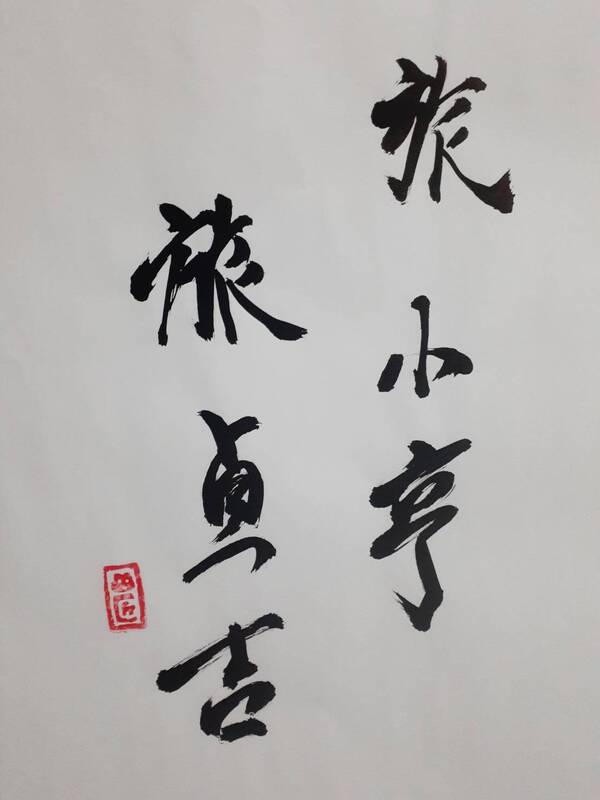 旅小亨
旅貞吉